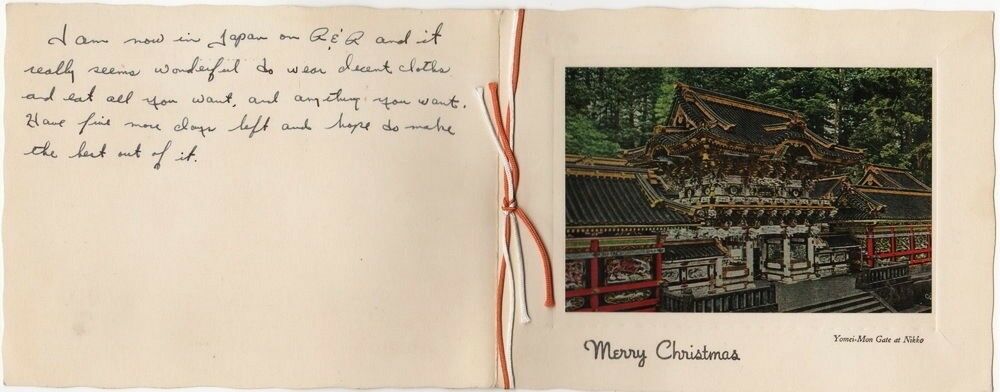 I am now in Japan on R & R and it
really seems wonderful to wear decent cloths
and eat all you want, and anything you want.
Have five more days left and hope to make
the best out of it.
Merry Christmas
Yomei-Mon Gate at Nikko